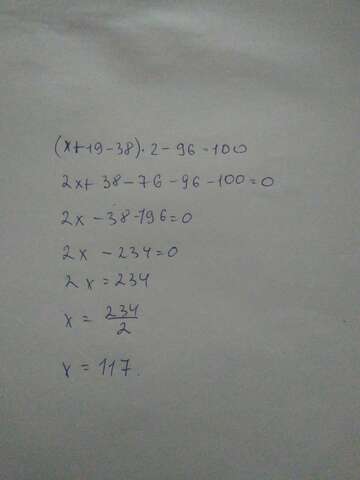 (x+19-38)·2-96=100
2x+38-76-96-100=0
2x-38-196=0
2x-234=0
2x=234
x=234/2
x=117.